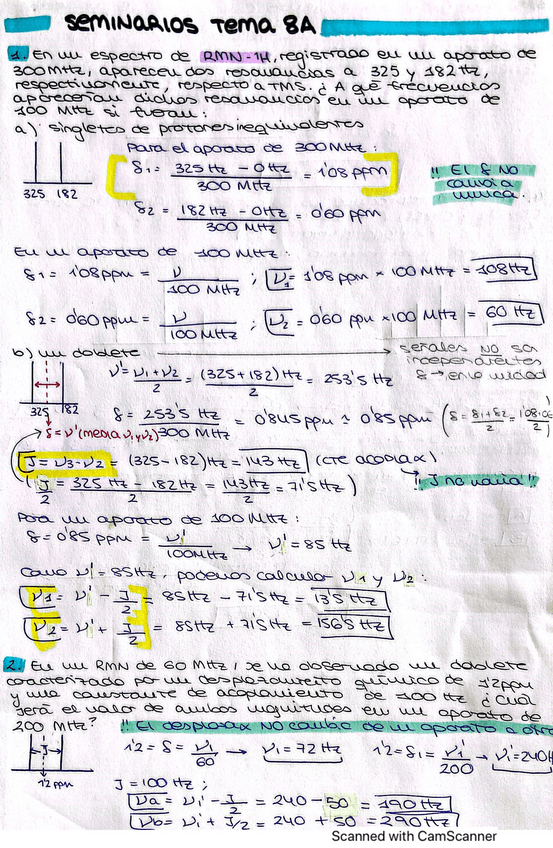 SEMINARIOS TEMA 8A
1. En un espectro de RMN-1H, registrado en un aparato de
300 MHz, aparecen dos resonancias a 325 y 182 Hz,
respectivamente, respecto a TMS. ¿A qué frecuencias
aparecerían dichas resonancias en un aparato de
100 MHz si fueran:
a) singletes de protones inequivalentes
Para el aparato de 300 MHz:
δ1 = 325 Hz - 0 Hz / 300 MHz = 1'08 ppm
!! El δ NO cambia nunca.
325 182
δ2 = 182 Hz - 0 Hz / 300 MHz = 0'60 ppm
En un aparato de 100 MHz:
δ1 = 1'08 ppm = ν / 100 MHz ; ν1 = 1'08 ppm × 100 MHz = 108 Hz
δ2 = 0'60 ppm = ν / 100 MHz ; ν2 = 0'60 ppm × 100 MHz = 60 Hz
b) un doblete → señales NO son
independientes
δ → en la mitad
ν' = ν1 + ν2 / 2 = (325 + 182) Hz / 2 = 253'5 Hz
325 182
δ = 253'5 Hz / 300 MHz = 0'845 ppm ≈ 0'85 ppm (δ = δ1 + δ2 / 2 =
→ δ = ν' (media ν1 y ν2)
J = ν3 - ν2 = (325 - 182) Hz = 143 Hz (cte acopla x)
(J/2 = 325 Hz - 182 Hz / 2 = 143 Hz / 2 = 71'5 Hz)
!! J no varía !!
Para un aparato de 100 MHz:
δ = 0'85 ppm = ν' / 100 MHz → ν' = 85 Hz
Como ν' = 85 Hz, podemos calcular ν1 y ν2:
ν1 = ν' - J/2 = 85 Hz - 71'5 Hz = 13'5 Hz
ν2 = ν' + J/2 = 85 Hz + 71'5 Hz = 156'5 Hz
2. En un RMN de 60 MHz, se ha observado un doblete
caracterizado por un desplazamiento químico de 1'2 ppm
y una constante de acoplamiento de 100 Hz ¿Cuál
será el valor de ambas magnitudes en un aparato de
200 MHz? !! El desplaza x NO cambia de un aparato a otro
1'2 = δ = ν1 / 60 → ν1 = 72 Hz 1'2 = δ1 = ν1' / 200 → ν1' = 240 H
J
1'2 ppm
J = 100 Hz ;
νa = ν1' - J/2 = 240 - 50 = 190 Hz
νb = ν1' + J/2 = 240 + 50 = 290 Hz
Scanned with CamScanner